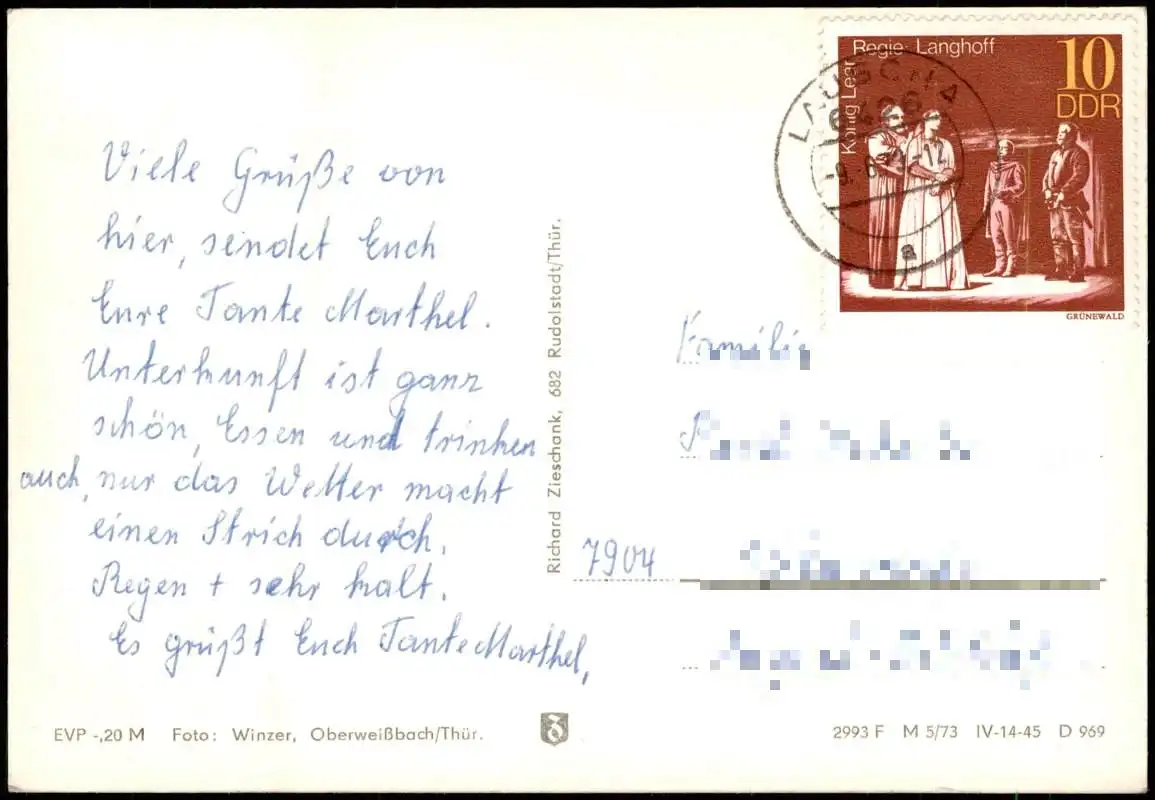 Viele Grüße von
hier, sendet Euch
Eure Tante Marthel.
Unterkunft ist ganz
schön, Essen und trinken
auch, nur das Wetter macht
einen Strich durch.
Regen + sehr kalt.
Es grüßt Euch Tante Marthel,
EVP -,20 M Foto: Winzer, Oberweißbach/Thür.
Richard Zieschank, 682 Rudolstadt/Thür.
König Lear Regie: Langhoff
10
DDR
GRÜNEWALD
LAUSCHA
6426
a
Familie
7904
2993 F M 5/73 IV-14-45 D 969